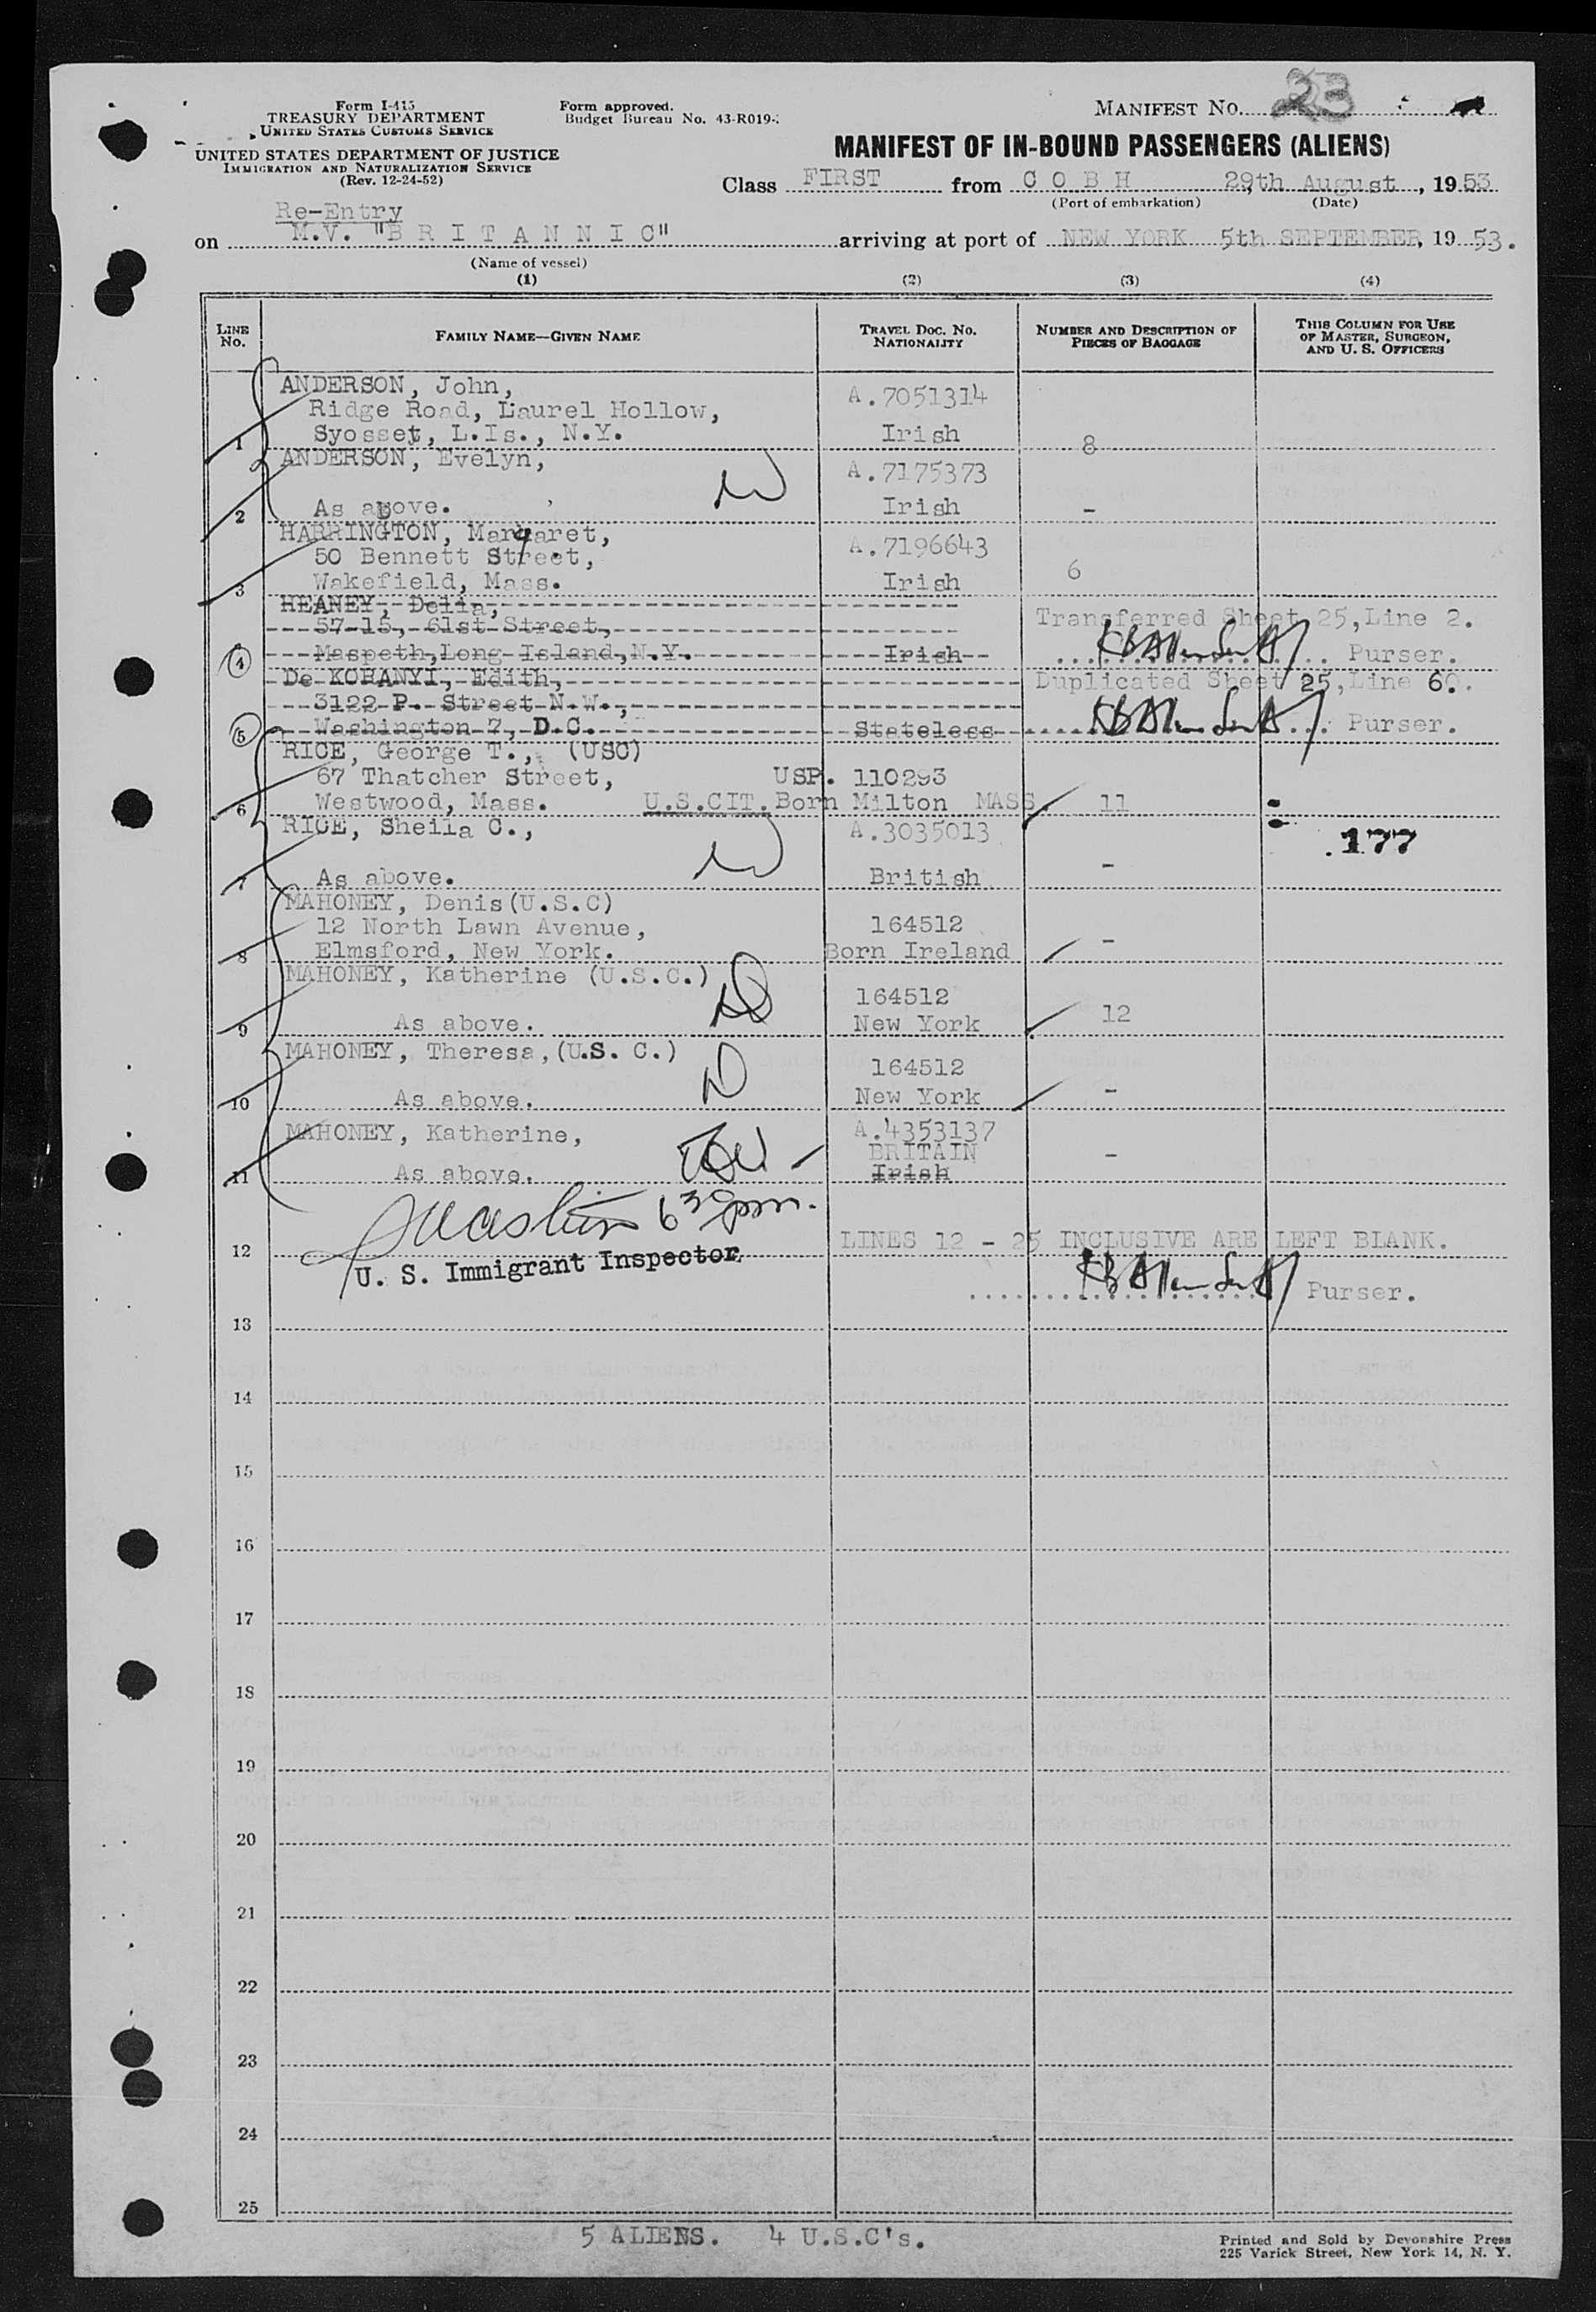 Form I-415
TREASURY DEPARTMENT
UNITED STATES CUSTOMS SERVICE
UNITED STATES DEPARTMENT OF JUSTICE
IMMIGRATION AND NATURALIZATION SERVICE
(Rev. 12-24-52)
Form approved.
Budget Bureau No. 43-R019-
MANIFEST No. 23
MANIFEST OF IN-BOUND PASSENGERS (ALIENS)
Class FIRST from C O B H 29th August, 1953
(Port of embarkation) (Date)
Re-Entry
on M.V. "B R I T A N N I C" arriving at port of NEW YORK 5th SEPTEMBER, 1953.
(Name of vessel)
(1) (2) (3) (4)
LINE No. FAMILY NAME—GIVEN NAME TRAVEL DOC. NO. NATIONALITY NUMBER AND DESCRIPTION OF PIECES OF BAGGAGE THIS COLUMN FOR USE OF MASTER, SURGEON, AND U. S. OFFICERS
ANDERSON, John, A.7051314
Ridge Road, Laurel Hollow,
1 Syosset, L.Is., N.Y. Irish 8
ANDERSON, Evelyn, A.7175373
2 As above. Irish -
HARRINGTON, Margaret, A.7196643
50 Bennett Street,
3 Wakefield, Mass. Irish 6
HEANEY, Delia, Transferred Sheet 25, Line 2.
57-15, 61st Street,
4 Maspeth, Long Island, N.Y. Irish Purser.
De KORANYI, Edith, Duplicated Sheet 25, Line 6.
3122 P. Street N.W.,
5 Washington 7, D.C. Stateless Purser.
RICE, George T., (USC)
67 Thatcher Street, USP. 110293
6 Westwood, Mass. U.S.CIT. Born Milton MASS. 11
RICE, Sheila C., A.3035013 177
7 As above. British -
MAHONEY, Denis (U.S.C)
12 North Lawn Avenue, 164512
8 Elmsford, New York. Born Ireland -
MAHONEY, Katherine (U.S.C.) 164512
9 As above. New York 12
MAHONEY, Theresa, (U.S. C.) 164512
10 As above. New York -
MAHONEY, Katherine, A.4353137
BRITAIN
11 As above. Irish -
6 30 pm.
12 LINES 12 - 25 INCLUSIVE ARE LEFT BLANK.
U. S. Immigrant Inspector
Purser.
13
14
15
16
17
18
19
20
21
22
23
24
25
5 ALIENS. 4 U.S.C's.
Printed and Sold by Devonshire Press
225 Varick Street, New York 14, N. Y.